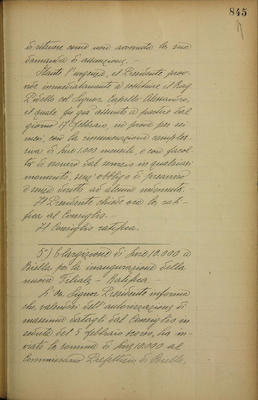 845
di ritenere come non avvenuta la sua
domanda di assunzione. -
Stante l'urgenza, il Presidente provvide
immediatamente a sostituire il Rag.
col Signor Alessandro,
il quale fu già assunto a partire dal
giorno 17 febbraio, in prova per sei
mesi, con la rimunerazione complessiva
di Lire 1.000 mensili, e con facoltà
di esonero dal servizio in qualsiasi
momento, senz'obbligo di preavviso
e senza diritto ad alcuna indennità.
Il Presidente chiede ora la ratifica
al Consiglio. -
Il Consiglio ratifica. -
5°) Elargizione di Lire 10.000 a
Biella per la inaugurazione della
nuova Filiale - Ratifica. -
Il Signor Presidente informa
che, valendosi dell'autorizzazione di
massima datagli dal Consiglio in
seduta del 5 febbraio scorso, ha inviato
la somma di Lire 10.000 al
Commissario Prefettizio di Biella,